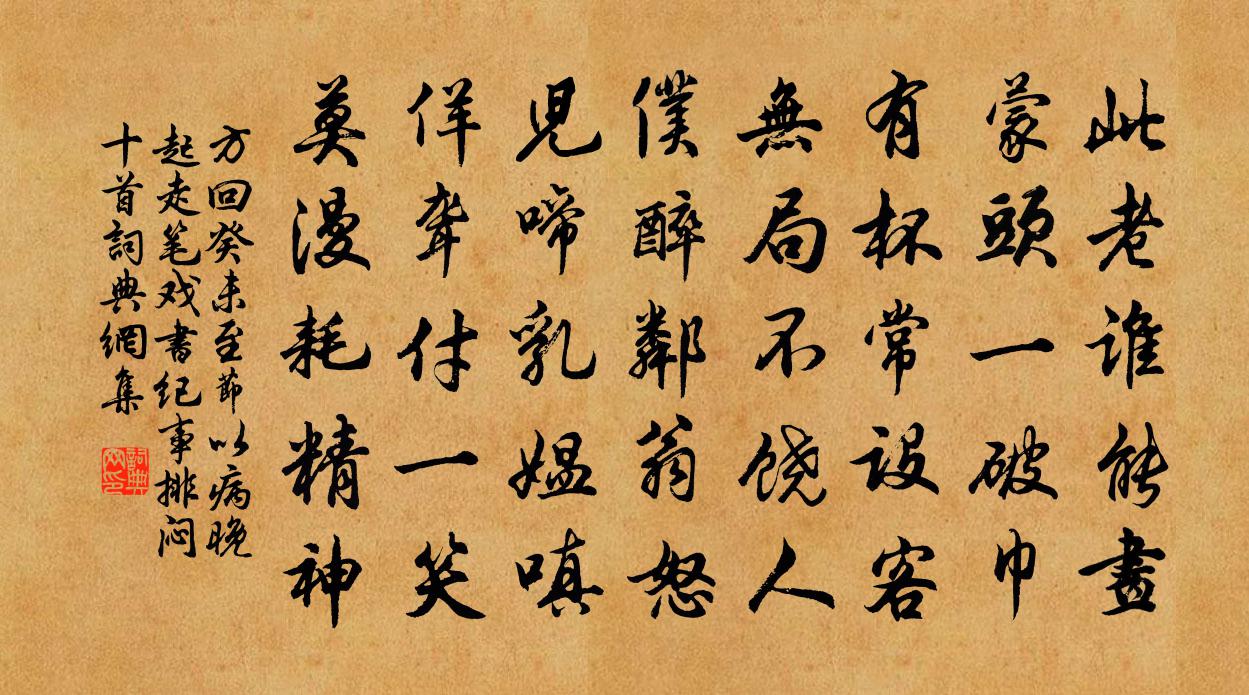 此老谁能畫
蒙頭一破巾
有杯常設客
無局不饶人
僕醉鄰翁怒
児啼乳媪嗔
佯聋付一笑
莫漫耗精神
方回癸未至節以病晚
起走笔戏書纪事排闷
十首詞典網集
詞典网印